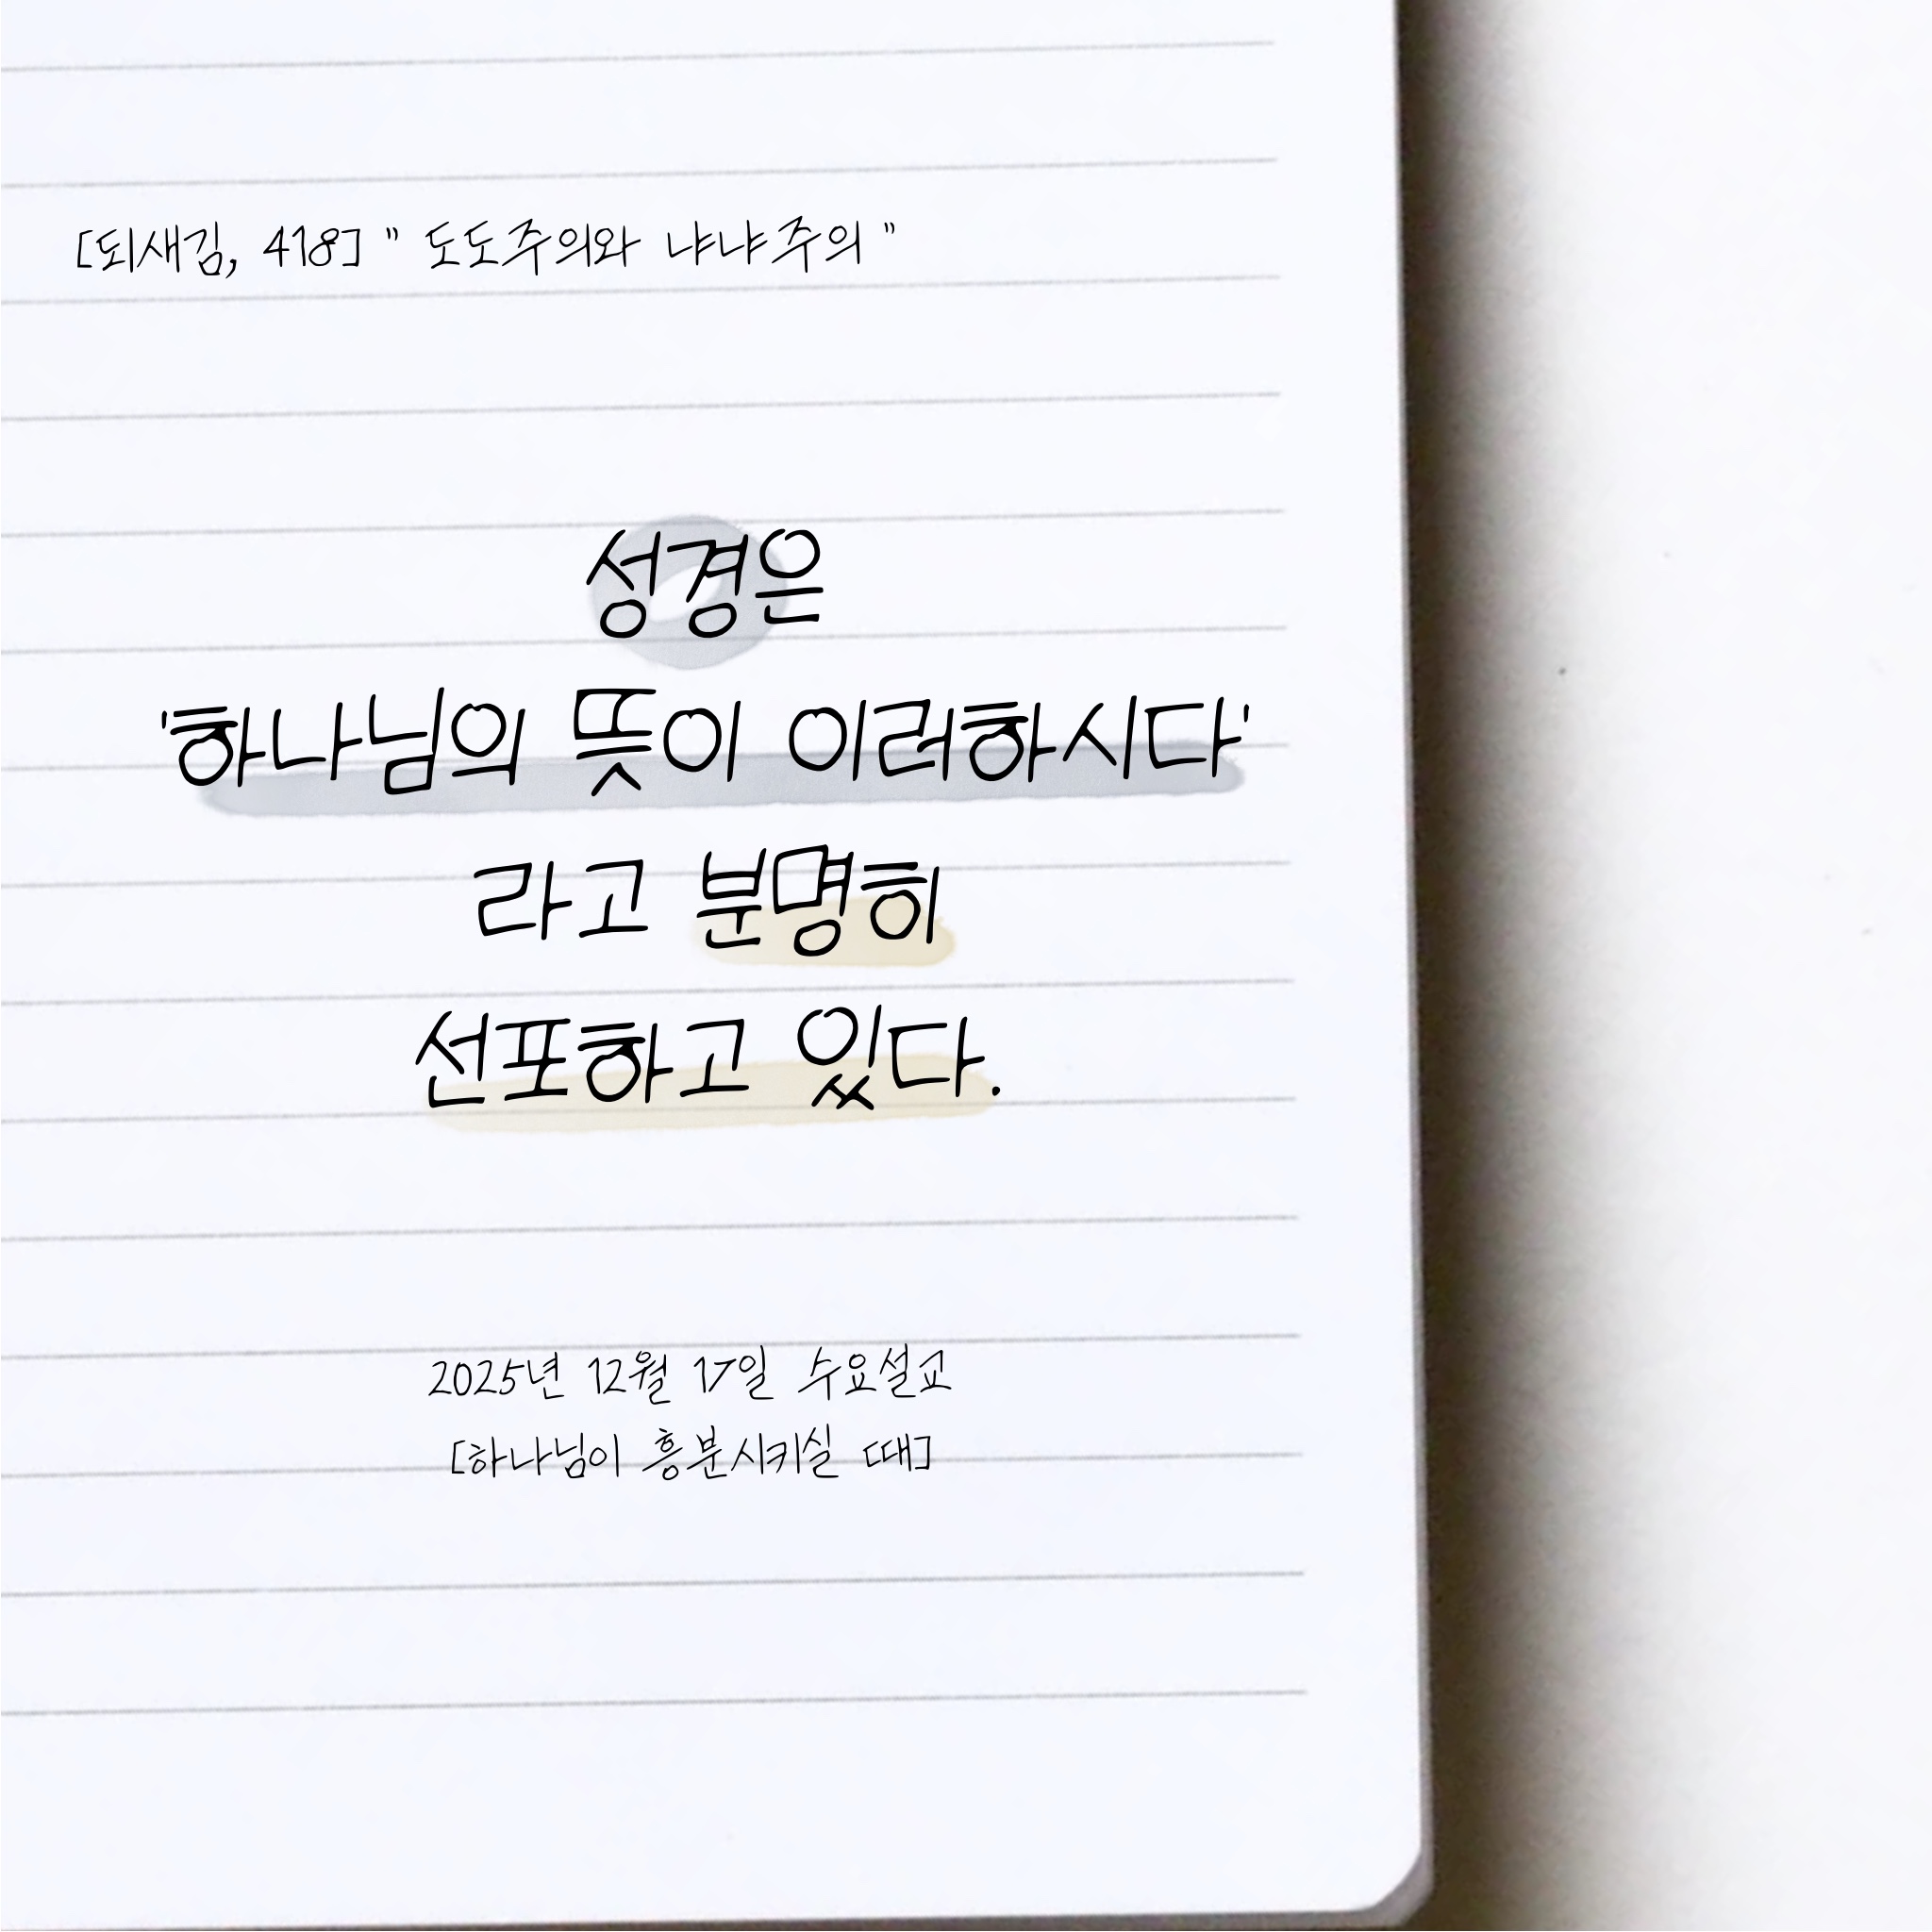 [되새김, 418] " 도도주의와 냐냐주의 "
성경은
'하나님의 뜻이 이러하시다'
라고 분명히
선포하고 있다.
2025년 12월 17일 수요설교
[하나님이 흥분시키실 때]